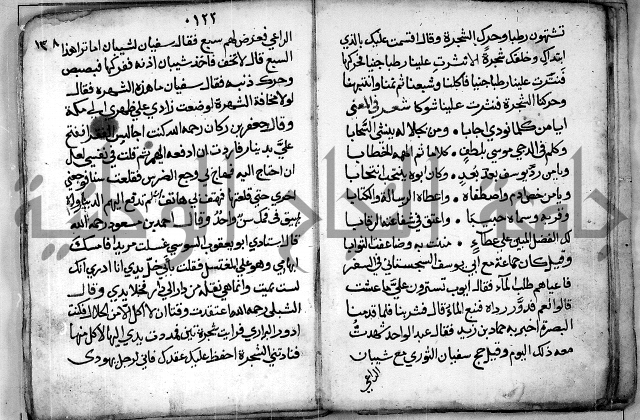 تشتهون رطبا وحرك الشجرة وقال اقسمت عليك بالذي
ابتداك وخلقك شجرة الا نثرت علينا رطبا جنيا فحركها
فنثرت علينا رطبا جنيا فاكلنا وشبعنا ثم نمنا وانتبهنا
وحركنا الشجرة فنثرت علينا شوكا شعر في المعنى
ايا من كلما نودي اجابا ومن بجلاله ينشي السحابا
وكلم في الدجى موسى بلطف كلاما ثم الهمه الخطابا
ويا من رد يوسف بعد بعد وكان ابوه ينتحب انتحابا
ويا من خص ادم واصطفاه واعطاه الرسالة والكتابا
وقربه وسماه حبيبا واعتق في شفاعته الرقابا
لك الفضل المبين على عطاء مننت به وضاعفت الثوابا
وقيل كان جماعة مع ابي يوسف السجستاني في السفر
فاعياهم طلب الماء فقال ايوب تسترون علي ما عشت
قالوا نعم فدور رداه فنبع الماء قال فشربنا فلما قدمنا
البصرة اخبر به حماد بن زيد فقال عبد الواحد شهدت
معه ذلك اليوم وقيل حج سفيان الثوري مع شيبان
الراعي
١٢٢
١٣٨
الراعي فعرض لهم سبع فقال سفيان لشيبان اما ترا هذا
السبع قال لا تخف فاخذ شيبان اذنه ففركها فبصبص
وحرك ذنبه فقال سفيان ما هذه الشهرة فقال
لولا مخافة الشهرة لوضعت زادي على ظهره الى مكة
وقال جعفر بن زكان رحمه الله كنت اجالس الفقرا ففتح
علي بدينار فاردت ان ادفعه اليهم ثم قلت في نفسي لعل
ان احتاج اليه فهاج لي وجع الضرس فقلعت سنا فوجعني
اخرى حتى قلعتها فهتف لي هاتف ان لم تدفع اليهم الدينار والا
يبق في فكك سن واحد وقال احمد بن مسعود رحمه الله
قال استادي ابو يعقوب السوسي غسلت مريدا فامسك
ابهامي وهو على المغتسل فقلت يا بني خل يدي انا ادري انك
لست بميت وانما هي نقله من دار الى دار فخلا يدي وقال
الشبلي رحمه الله اعتقدت وقتا ان لا اكل الا من الحلال فكنت
ادور البراري فرايت شجرة تين فمددت يدي اليها لاكل منها
فنادتني الشجرة احفظ عليك عقدك فاني لرجل يهودي
جامعة النجاح الوطنية